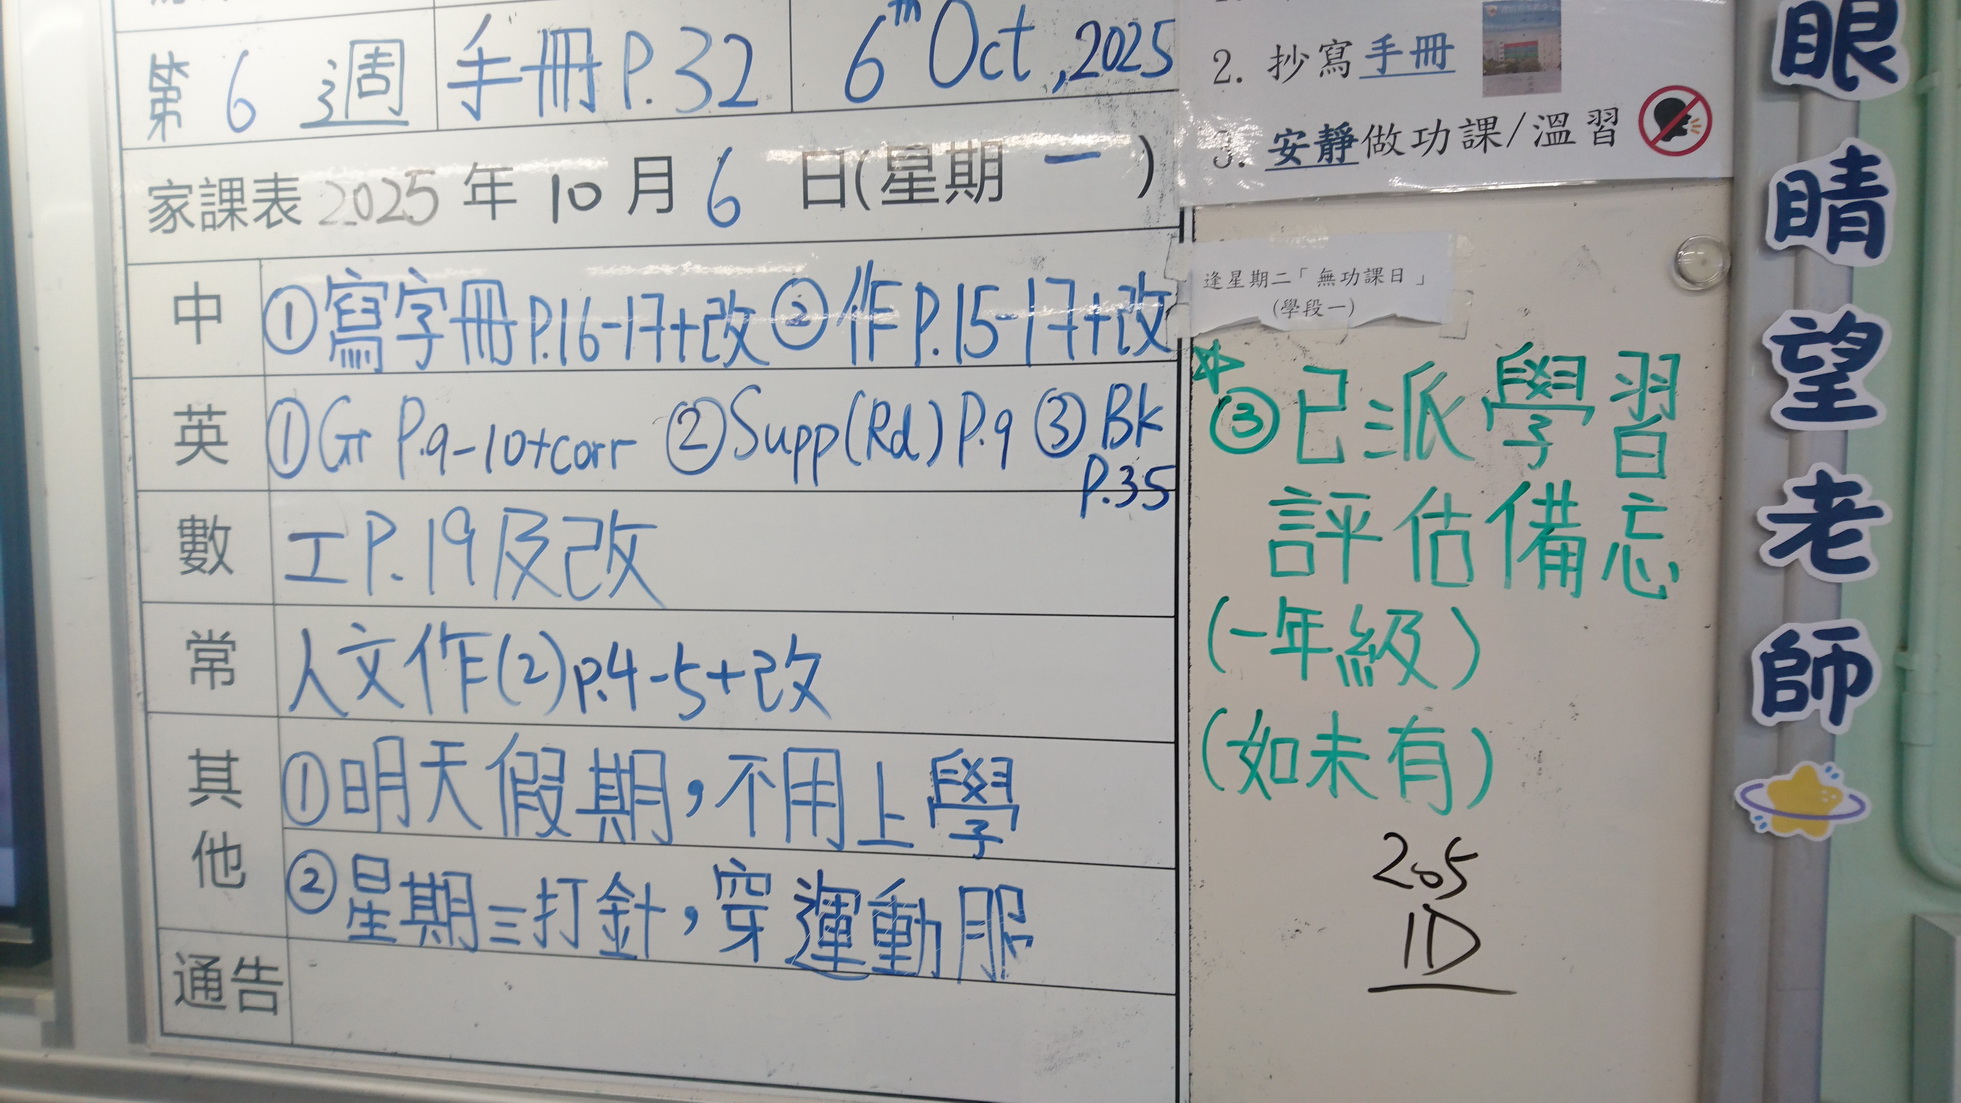 第6週 手冊P.32 6th Oct,2025
家課表2025年10月6日(星期一)
中 ①寫字冊P.16-17+改②作P.15-17+改
英 ①Gr P.9-10+corr ②Supp(Rd)P.9 ③Bk
P.35
數 工P.19及改
常 人文作(2)p.4-5+改
其他 ①明天假期,不用上學
②星期三打針,穿運動服
通告
2. 抄寫手冊
3. 安靜做功課/溫習
逢星期二「無功課日」
(學段一)
☆
③已派學習
評估備忘
(一年級)
(如未有)
205
1D
眼睛望老師